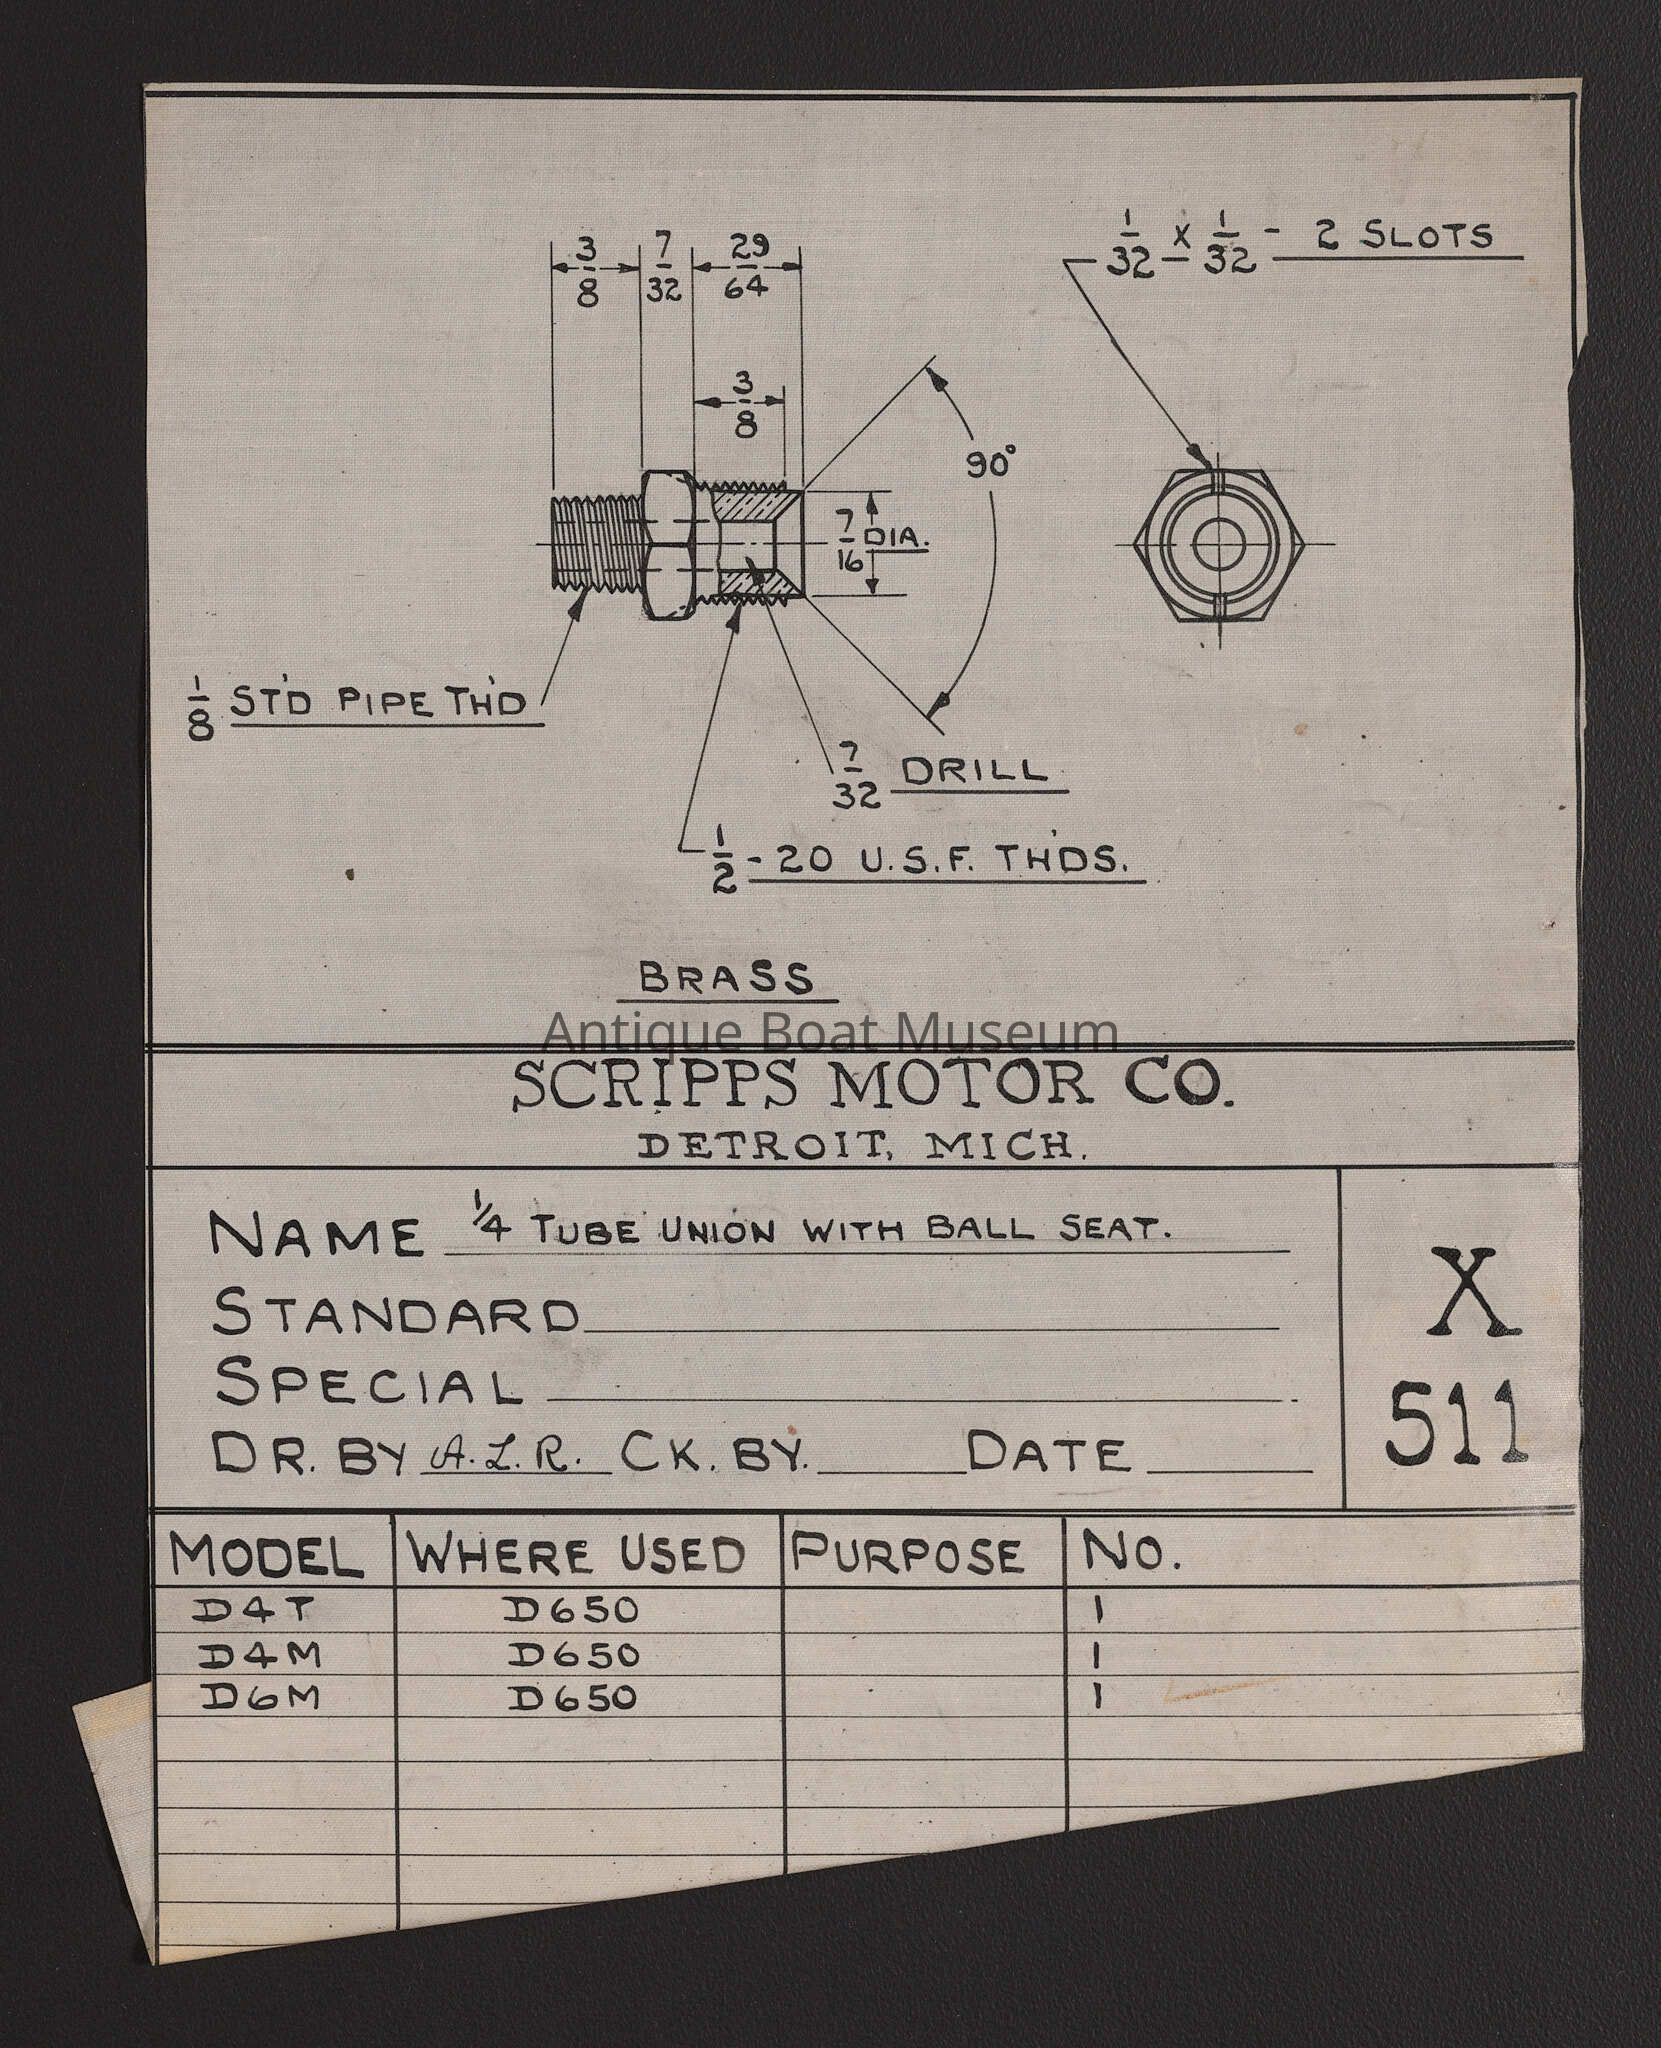 3/8 7/32 29/64
1/32 x 1/32 - 2 SLOTS
3/8
90°
7/16 DIA.
1/8 ST'D PIPE TH'D
7/32 DRILL
1/2 - 20 U.S.F. TH'DS.
BRASS
Antique Boat Museum
SCRIPPS MOTOR CO.
DETROIT, MICH.
NAME 1/4 TUBE UNION WITH BALL SEAT.
STANDARD
SPECIAL
DR. BY A.L.R. CK. BY. DATE
X
511
MODEL WHERE USED PURPOSE NO.
D4T D650 1
D4M D650 1
D6M D650 1